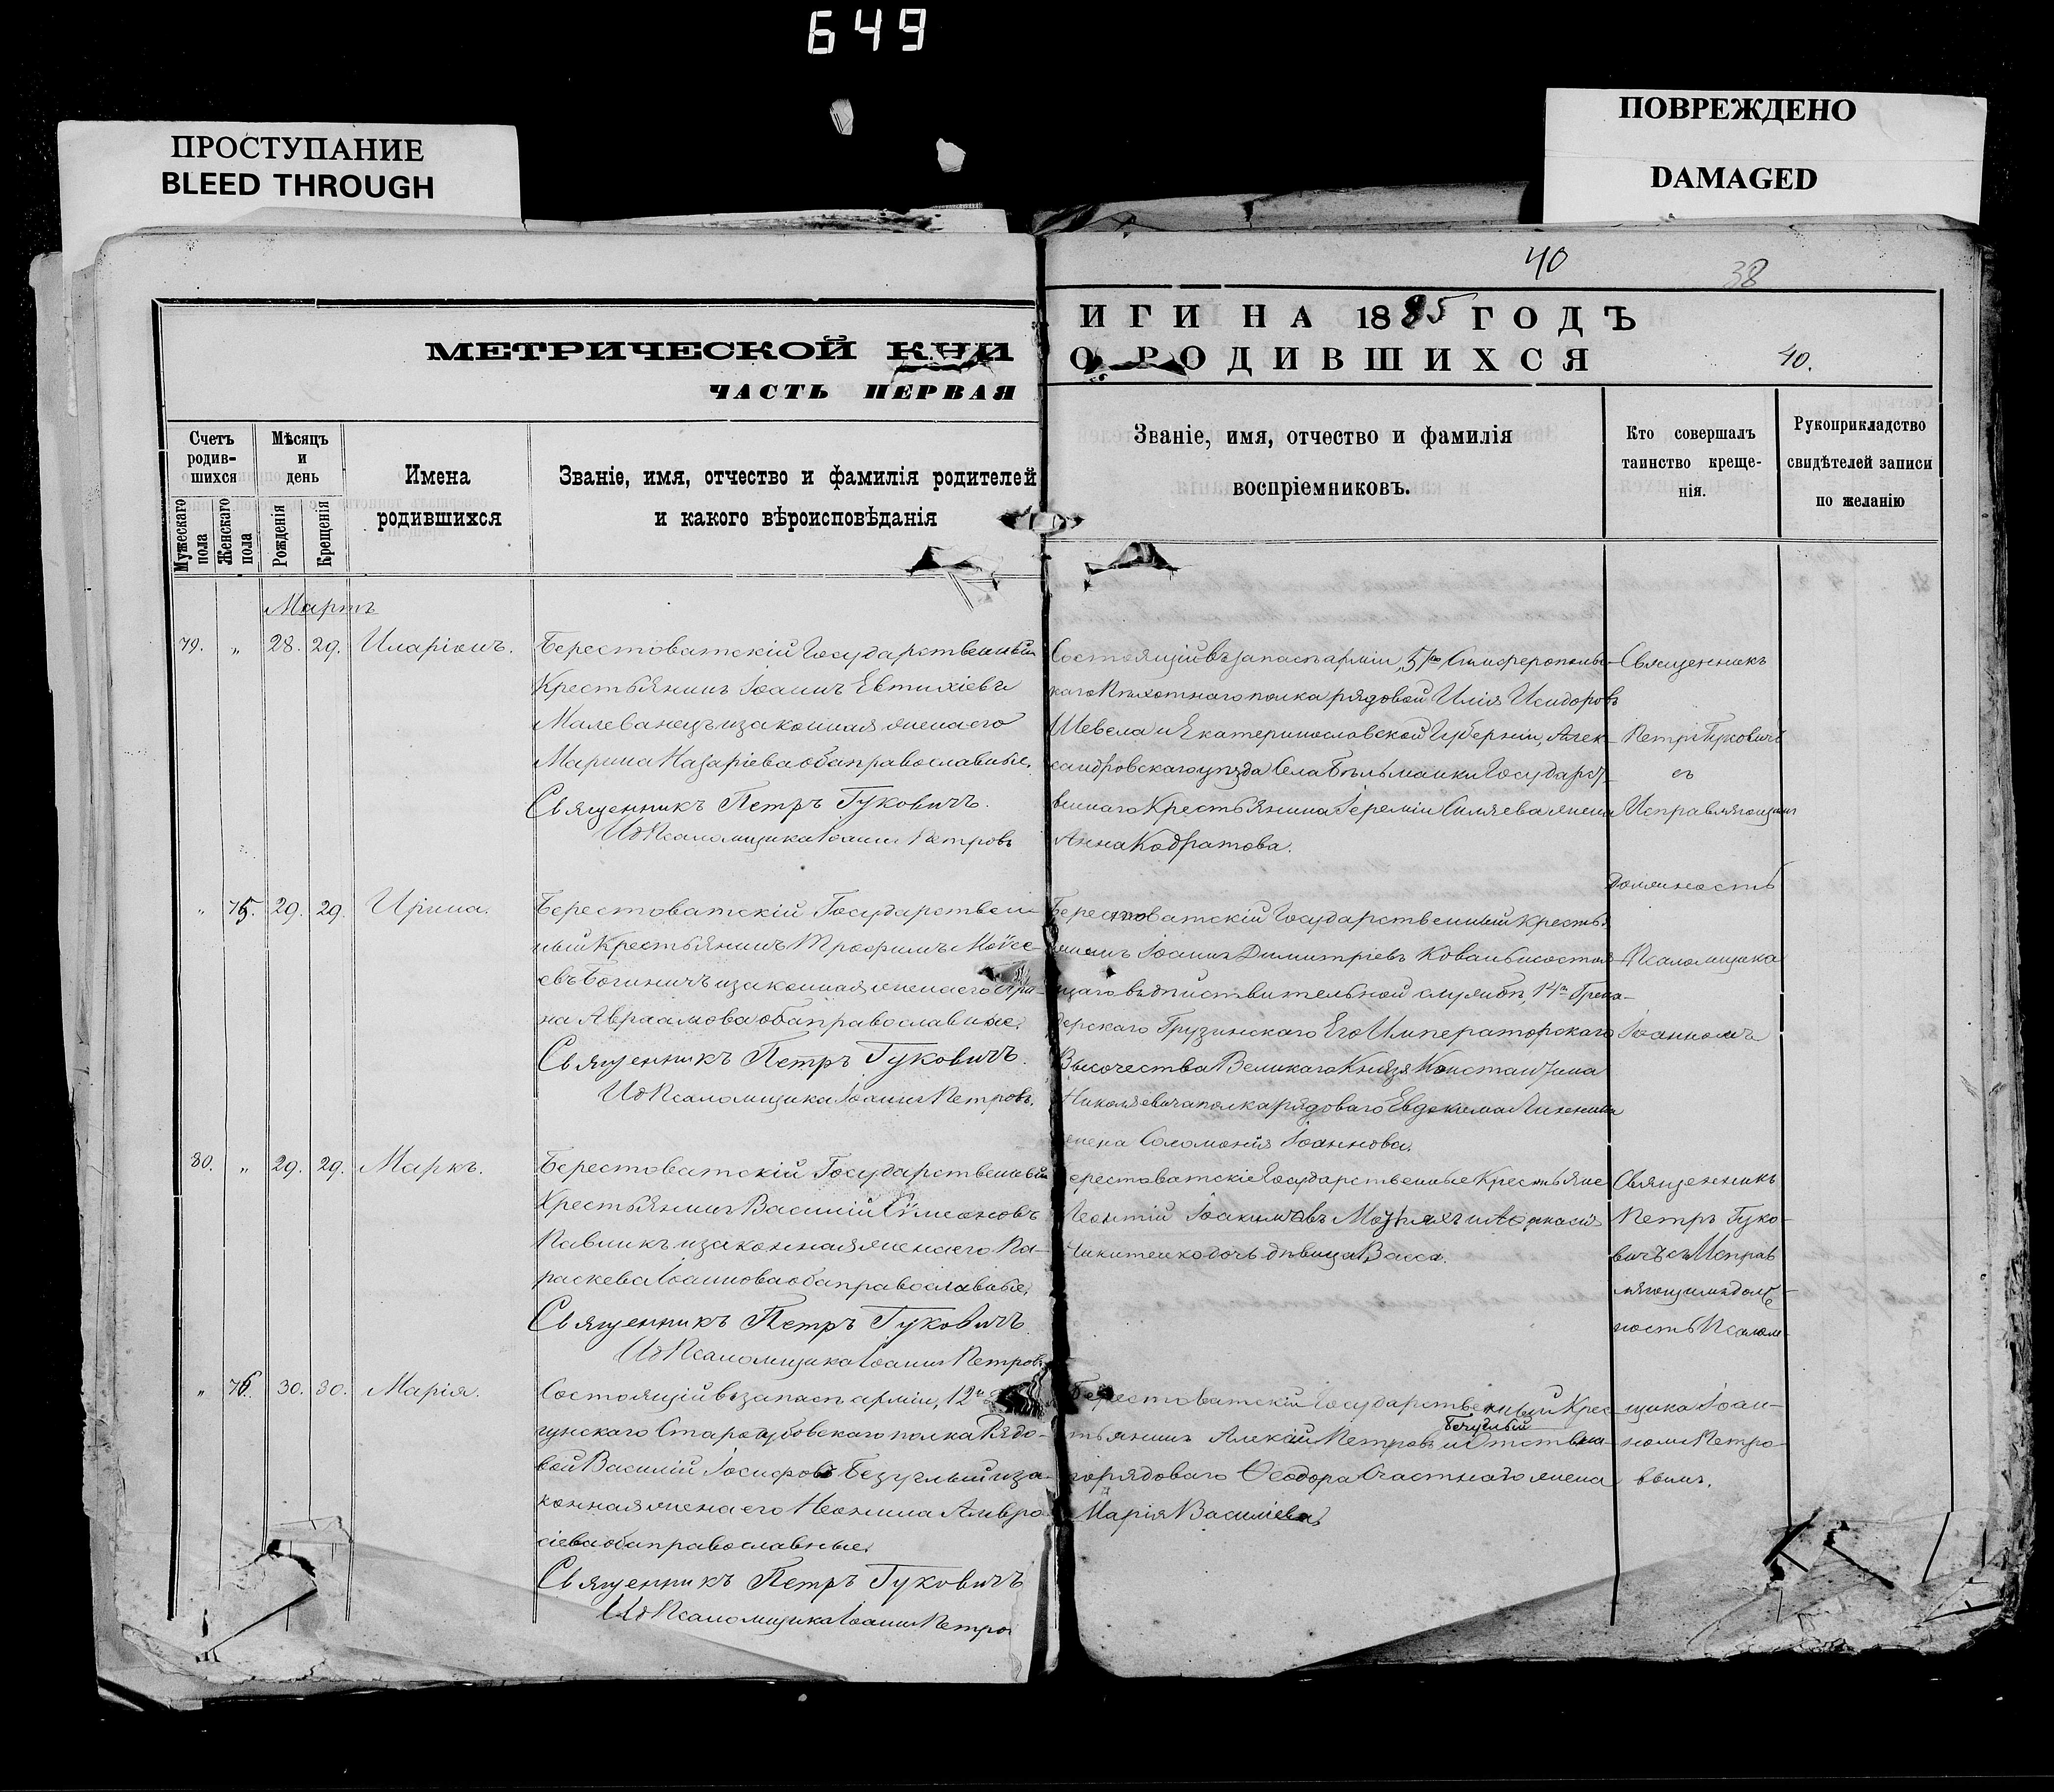 649
ПРОСТУПАНИЕ
BLEED THROUGH
ПОВРЕЖДЕНО
DAMAGED
40
38
МЕТРИЧЕСКОЙ КНИ
ИГИ НА 1885 ГОДЪ
ЧАСТЬ ПЕРВАЯ
О РОДИВШИХСЯ
40.
Счетъ родив-шихся
Мужескаго пола
Женскаго пола
Мѣсяцъ и день
Рожденія
Крещенія
Имена родившихся
Званіе, имя, отчество и фамилія родителей
и какого вѣроисповѣданія
Званіе, имя, отчество и фамилія
воспріемниковъ.
Кто совершалъ
таинство креще-
нія.
Рукоприкладство
свидѣтелей записи
по желанію
Мартъ
79. „ 28. 29. Иларіонъ.
Берестоватскій Государственный
Крестьянинъ Іоаннъ Евтихіевъ
Малеванецъ и законная жена его
Марина Назаріева оба православные.
Священникъ Петръ Гуковичъ.
ИдПсаломщика Іоаннъ Петровъ
Состоящій въ запасѣ арміи,
каго Пѣхотнаго полка рядовой Илія Исидоровъ
Шевела и Екатеринославской Губерніи, Алек-
сандровскаго уѣзда Села Бѣльманки Государст-
веннаго Крестьянина Іереміи жена
Анна Кодратова.
Священникъ
Петръ Гуковичъ
съ
Исправляющимъ
должность
Псаломщика
Іоанномъ
„ 75. 29. 29. Ирина.
Берестоватскій Государствен-
ный Крестьянинъ Трофимъ Моѵсе-
евъ Богиничъ и законная жена его Ири-
на Авраамова оба православные.
Священникъ Петръ Гуковичъ.
ИдПсаломщика Іоаннъ Петровъ.
Берестоватскій Государственный Кресть-
янинъ Іоаннъ Димитріевъ
щаго въ дѣйствительной службѣ, 14го Грена-
дерскаго Грузинскаго Его Императорскаго
Высочества Великаго Князя Константина
Николаевича полка рядоваго Евдокима
жена Соломонія Іоаннова.
80. „ 29. 29. Маркъ.
Берестоватскій Государственный
Крестьянинъ Василій Сѵмеоновъ
Павликъ и законная жена его Па-
раскева Іоаннова оба православные.
Священникъ Петръ Гуковичъ
ИдПсаломщика Іоаннъ Петровъ
ерестоватскіе Государственные Крестьяне
Леонтій Іоакимовъ
дочь дѣвица Васса.
Священникъ
Петръ Гуко-
вичъ съ Исправ
ляющимъ долж-
ность Псалом-
щика Іоан-
номъ Петро-
вымъ.
„ 76. 30. 30. Марія.
Состоящій въ запасѣ арміи, 12го
гунскаго Стародубовскаго полка Рядо-
вой Василій Іосифовъ Безуглый и за-
конная жена его Неонила Амвро-
сіева оба православные.
Священникъ Петръ Гуковичъ
ИдПсаломщика Іоаннъ Петро
Берестоватскій Государственный Крес-
тьянинъ Алексій Петровъ Безуглый и Отставна-
го рядоваго Ѳеодора Счастнаго жена
Марія Василіева.